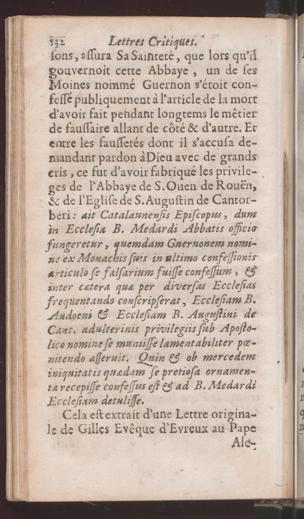 132 Lettres Critiques.
sons, assura Sa Sainteté, que lors qu'il
gouvernoit cette Abbaye, un de ses
Moines nommé Guernon s'étoit con-
fessé publiquement à l'article de la mort
d'avoir fait pendant longtems le métier
de faussaire allant de côté & d'autre. Et
entre les faussetés dont il s'accusa de-
mandant pardon à Dieu avec de grands
cris, ce fut d'avoir fabriqué les privile-
ges de l'Abbaye de S. Ouen de Rouën,
& de l'Eglise de S. Augustin de Cantor-
beri: ait Catalaunensis Episcopus, dum
in Ecclesia B. Medardi Abbatis officio
fungeretur, quemdam Guernonem nomi-
ne ex Monachis suis in ultimo confessionis
articulo se falsarium fuisse confessum, &
inter cætera quæ per diversas Ecclesias
frequentando conscripserat, Ecclesiam B.
Audoeni & Ecclesiam B. Augustini de
Cant. adulterinis privilegiis sub Aposto-
lico nomine se muniisse lamentabiliter pœ-
nitendo asseruit. Quin & ob mercedem
iniquitatis quædam se pretiosa ornamen-
ta recepisse confessus est & ad B. Medardi
Ecclesiam detulisse.
Cela est extrait d'une Lettre origina-
le de Gilles Evêque d'Evreux au Pape
Ale-